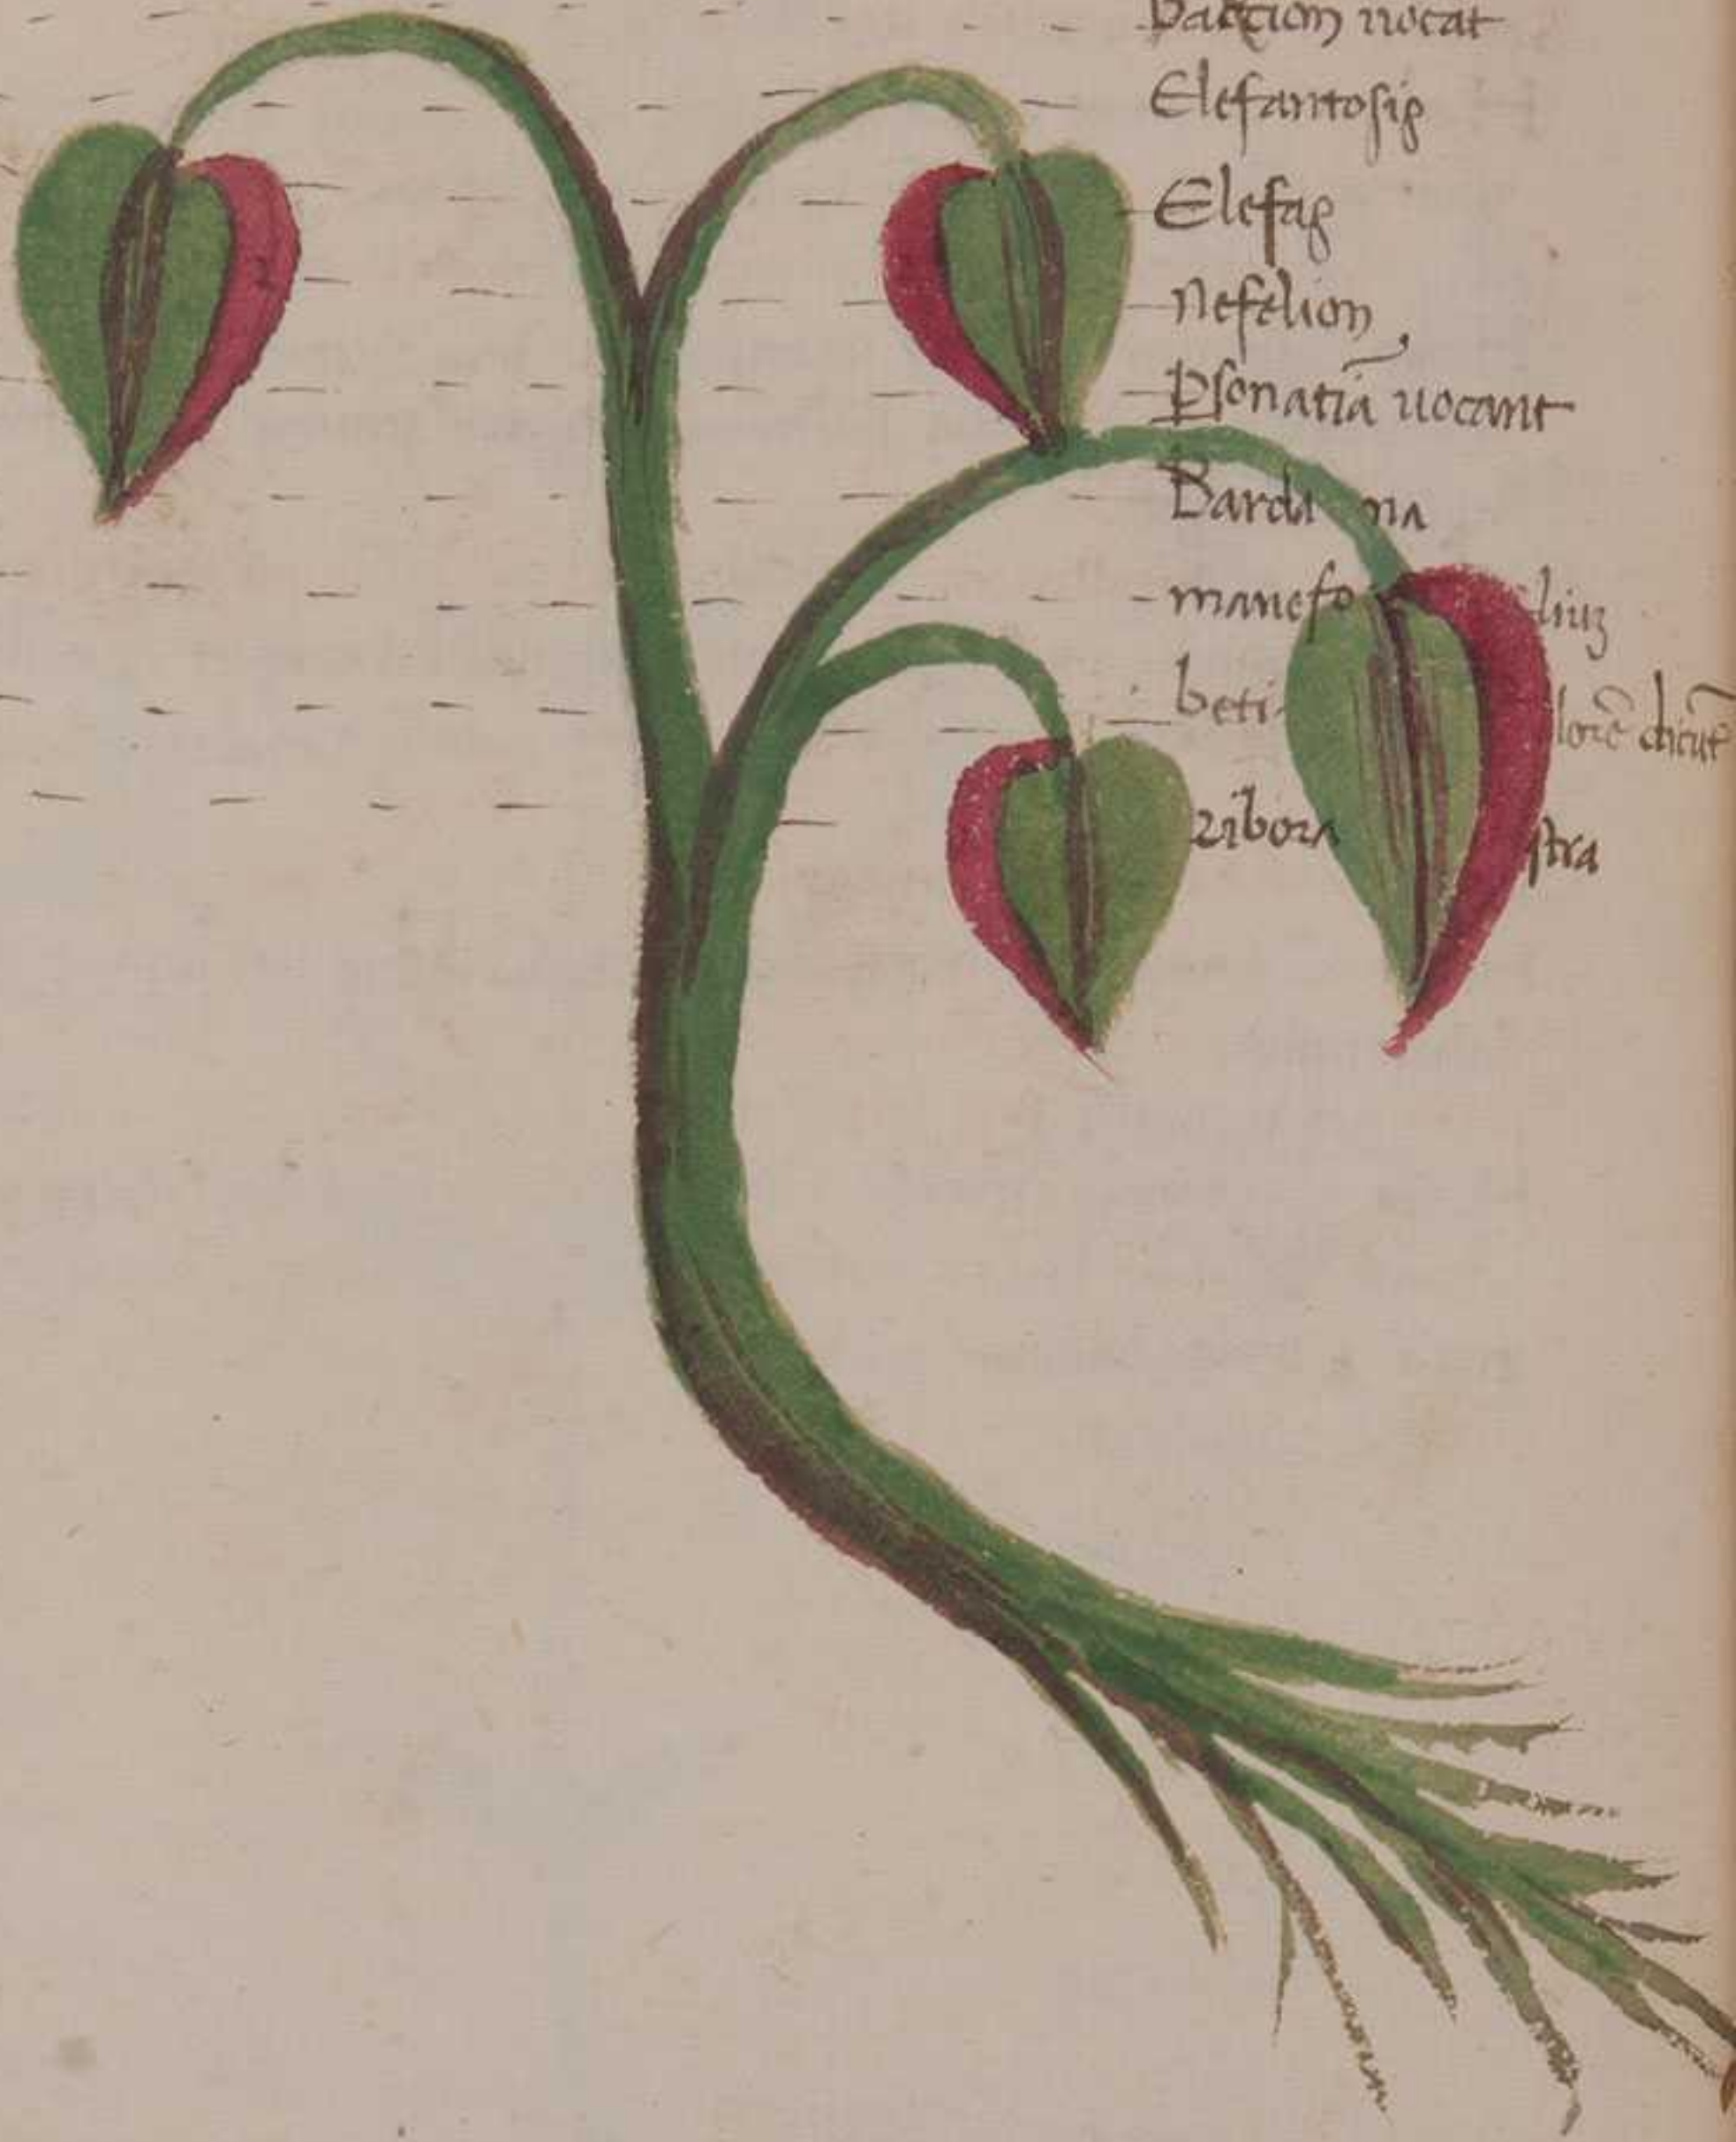 uocat
Elefantosis
Elefas
nefelion
psonatiā uocant
Barda na
manefo liuz
beti lorē dicūt
zibora stra